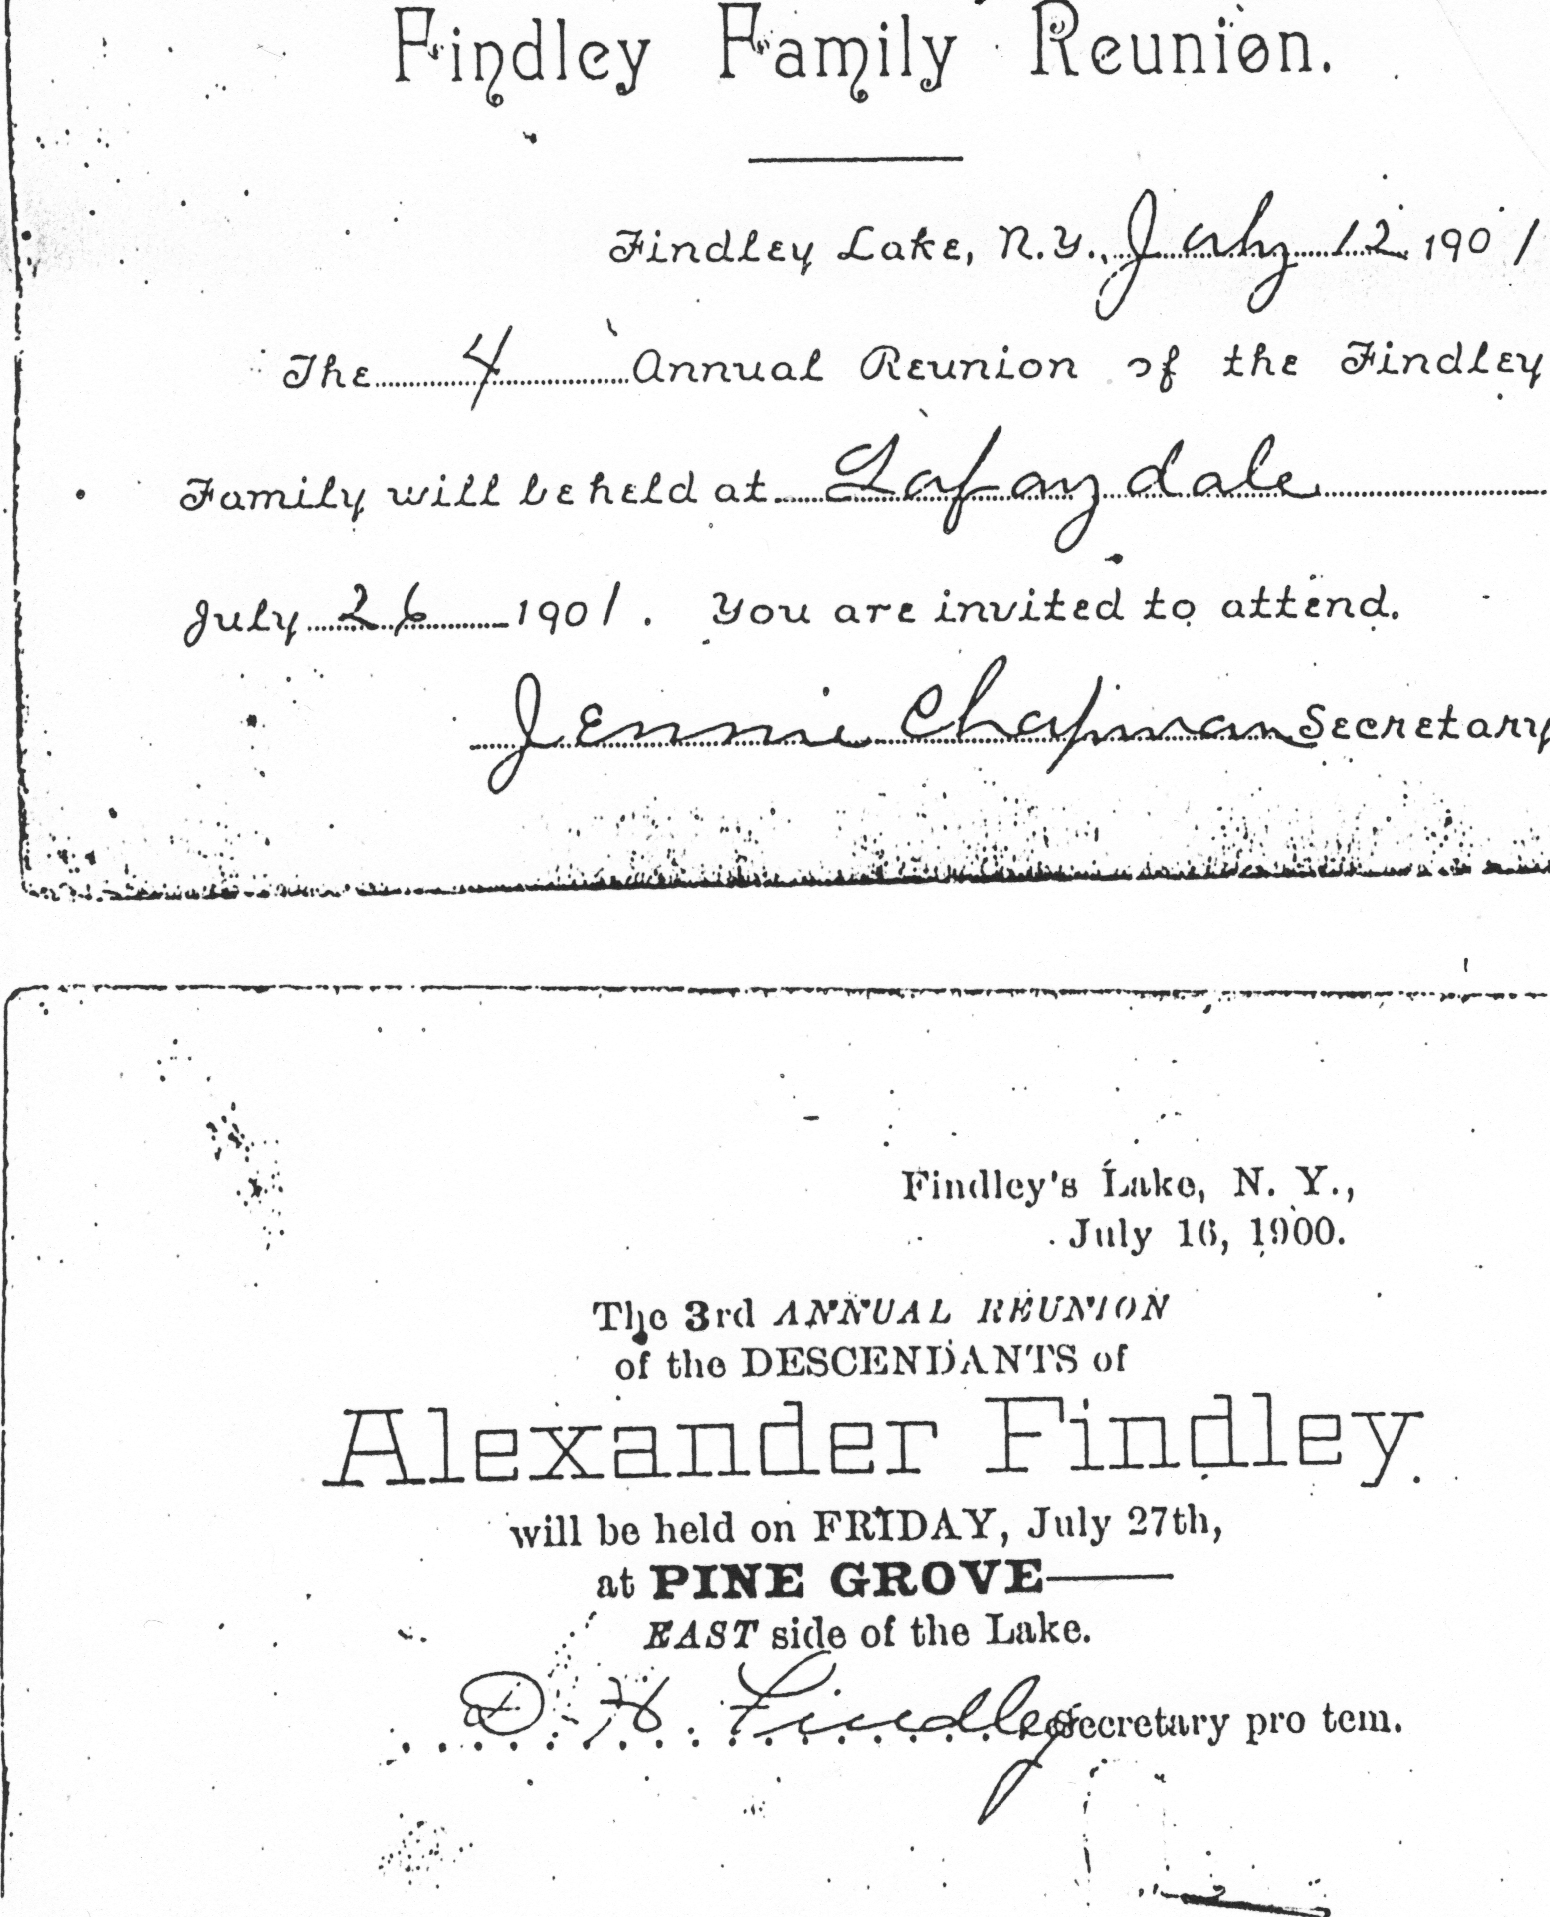 Findley Family Reunion.
Findley Lake, N.Y., July 12 1901
The 4 Annual Reunion of the Findley
Family will be held at Lafaydale
July 26 1901. You are invited to attend.
Jennie Chapman Secretary
Findley's Lake, N. Y.,
July 16, 1900.
The 3rd ANNUAL REUNION
of the DESCENDANTS of
Alexander Findley.
will be held on FRIDAY, July 27th,
at PINE GROVE——
EAST side of the Lake.
D. H. Findley Secretary pro tem.